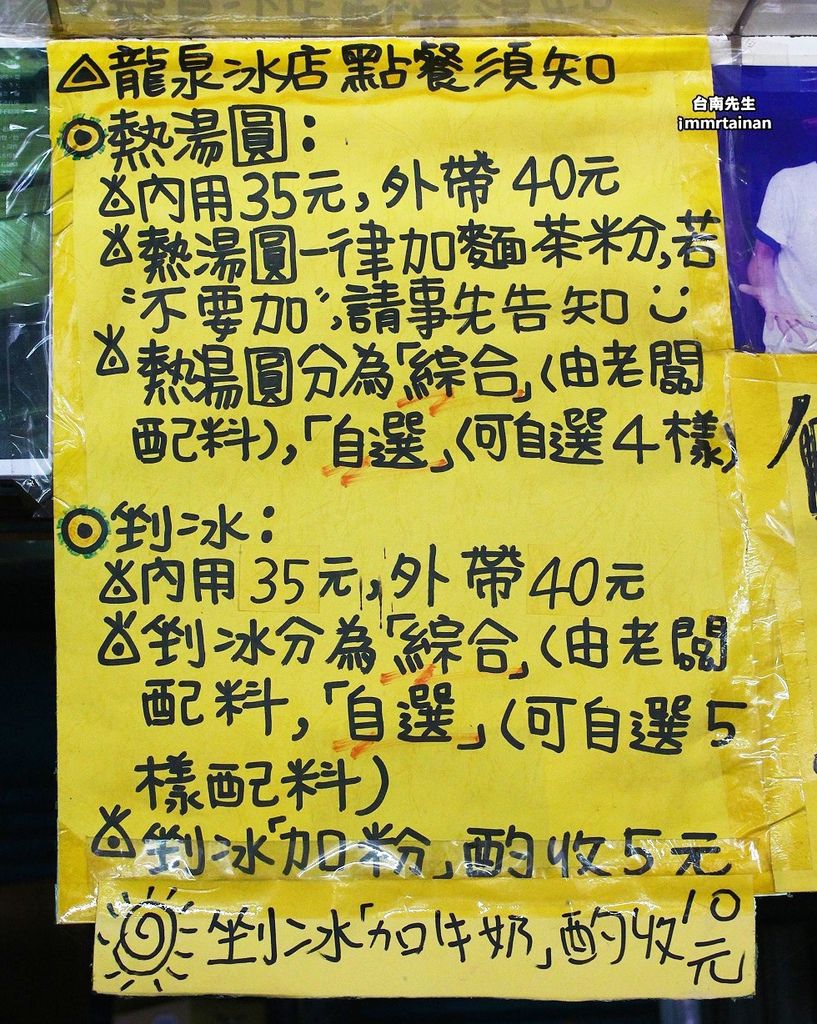 龍泉冰店點餐須知
台南先生
immrtainan
熱湯圓:
內用35元,外帶40元
熱湯圓一律加麵茶粉,若
"不要加",請事先告知
熱湯圓分為「綜合」(由老闆
配料),「自選」(可自選4樣)
剉冰:
內用35元,外帶40元
剉冰分為「綜合」(由老闆
配料,「自選」(可自選5
樣配料)
剉冰「加粉」酌收5元
剉冰「加牛奶」酌收10元